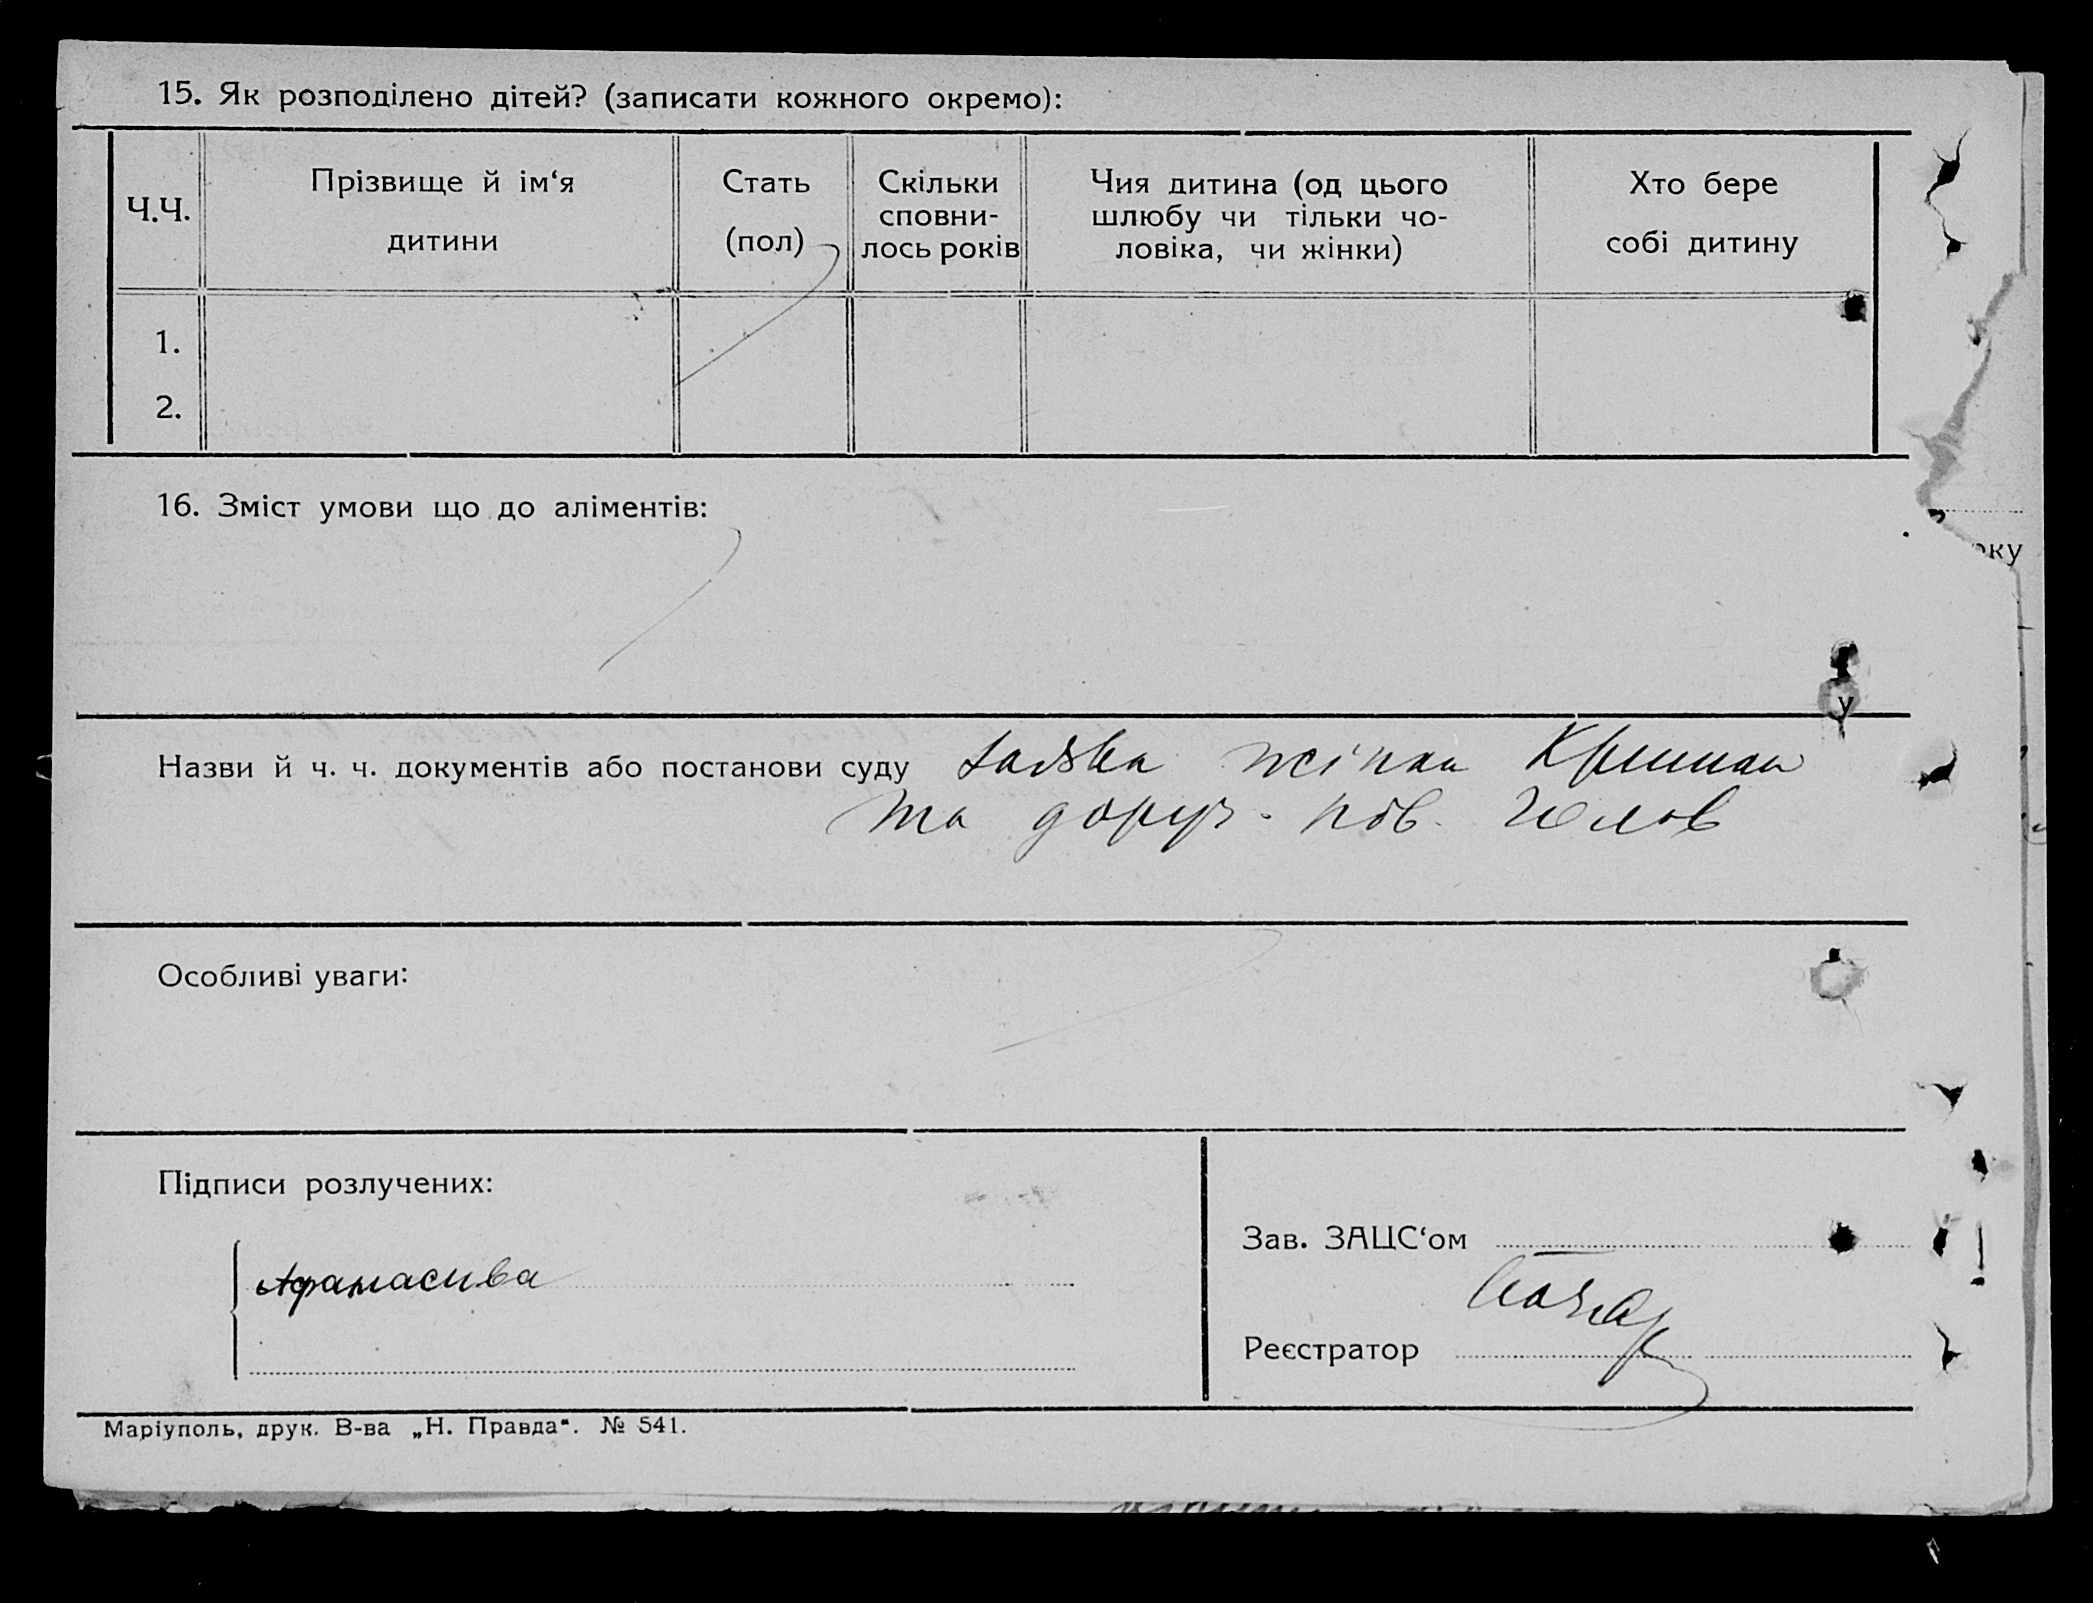 15. Як розподілено дітей? (записати кожного окремо):
Ч.Ч.
Прізвище й ім‘я
дитини
Стать
(пол)
Скільки
сповни-
лось років
Чия дитина (од цього
шлюбу чи тільки чо-
ловіка, чи жінки)
Хто бере
собі дитину
1.
2.
16. Зміст умови що до аліментів:
оку
у
Назви й ч. ч. документів або постанови суду заява
та доруч.
Особливі уваги:
Підписи розлучених:
Афанасива
Зав. ЗАЦС‘ом
Реєстратор
Маріуполь, друк. В-ва „Н. Правда“. № 541.